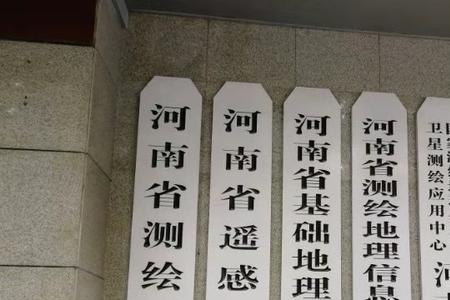 河南省测绘
河南省遥感
河南省基础地理
河南省测绘地理信息
卫星测绘应用中心
河